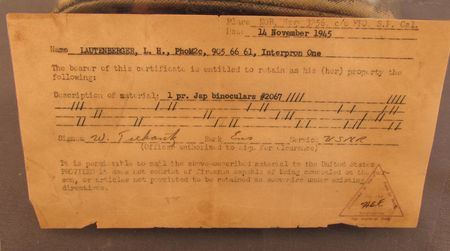 Place NOB, 1956, c/o FPO, S.F. Cal.
Date 14 November 1945
Name LAUTENBERGER, L. H., PhoM2c, 905 66 61, Interpron One
The bearer of this certificate is entitled to retain as his (her) property the
following:
Description of material: 1 pr. Jap binoculars #2067 ////
Signed W. Rank Ens Service USNR
(Officer authorized to sign for clearance)
It is permissible to mail the above-described material to the United States
PROVIDED it does not consist of firearms capable of being concealed on the per-
son, or articles not permitted to be retained as souvenirs under existing
directives.